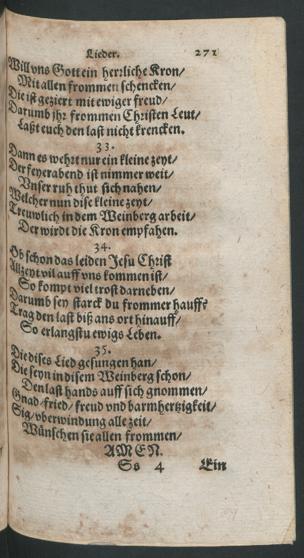 Lieder. 271
Will vns Gott ein herrliche Kron/
Mit allen frommen schencken/
Die ist geziert mit ewiger freud/
Darumb jhr frommen Christen Leut/
Laßt euch den last nicht krencken.
33.
Dann es wehrt nur ein kleine zeyt/
Der feyerabend ist nimmer weit/
Vnser ruh thut sich nahen/
Welcher nun dise kleine zeyt/
Treuwlich in dem Weinberg arbeit/
Der wirdt die Kron empfahen.
34.
Ob schon das leiden Jesu Christ
Allzeyt vil auff vns kommen ist/
So kompt viel trost darneben/
Darumb sey starck du frommer hauff/
Trag den last biß ans ort hinauff/
So erlangstu ewigs Leben.
35.
Die dises Lied gesungen han/
Die seyn in disem Weinberg schon/
Den last hands auff sich gnommen/
Gnad/fried/ freud vnd barmhertzigkeit/
Sig/vberwindung alle zeit/
Wünschen sie allen frommen/
AMEN.
Ss 4 Ein